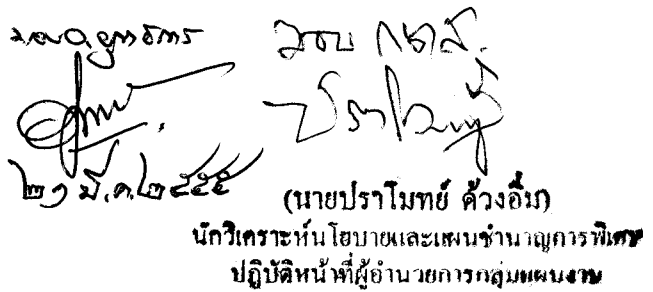 มอบ อ.ยุทธการ
มอบ กผส.
ปราโมทย์
๒๑ มี.ค. ๒๕๕๕
(นายปราโมทย์ ค้วงอิ่ม)
นักวิเคราะห์นโยบายและแผนชำนาญการพิเศษ
ปฏิบัติหน้าที่ผู้อำนวยการกลุ่มแผนงาน